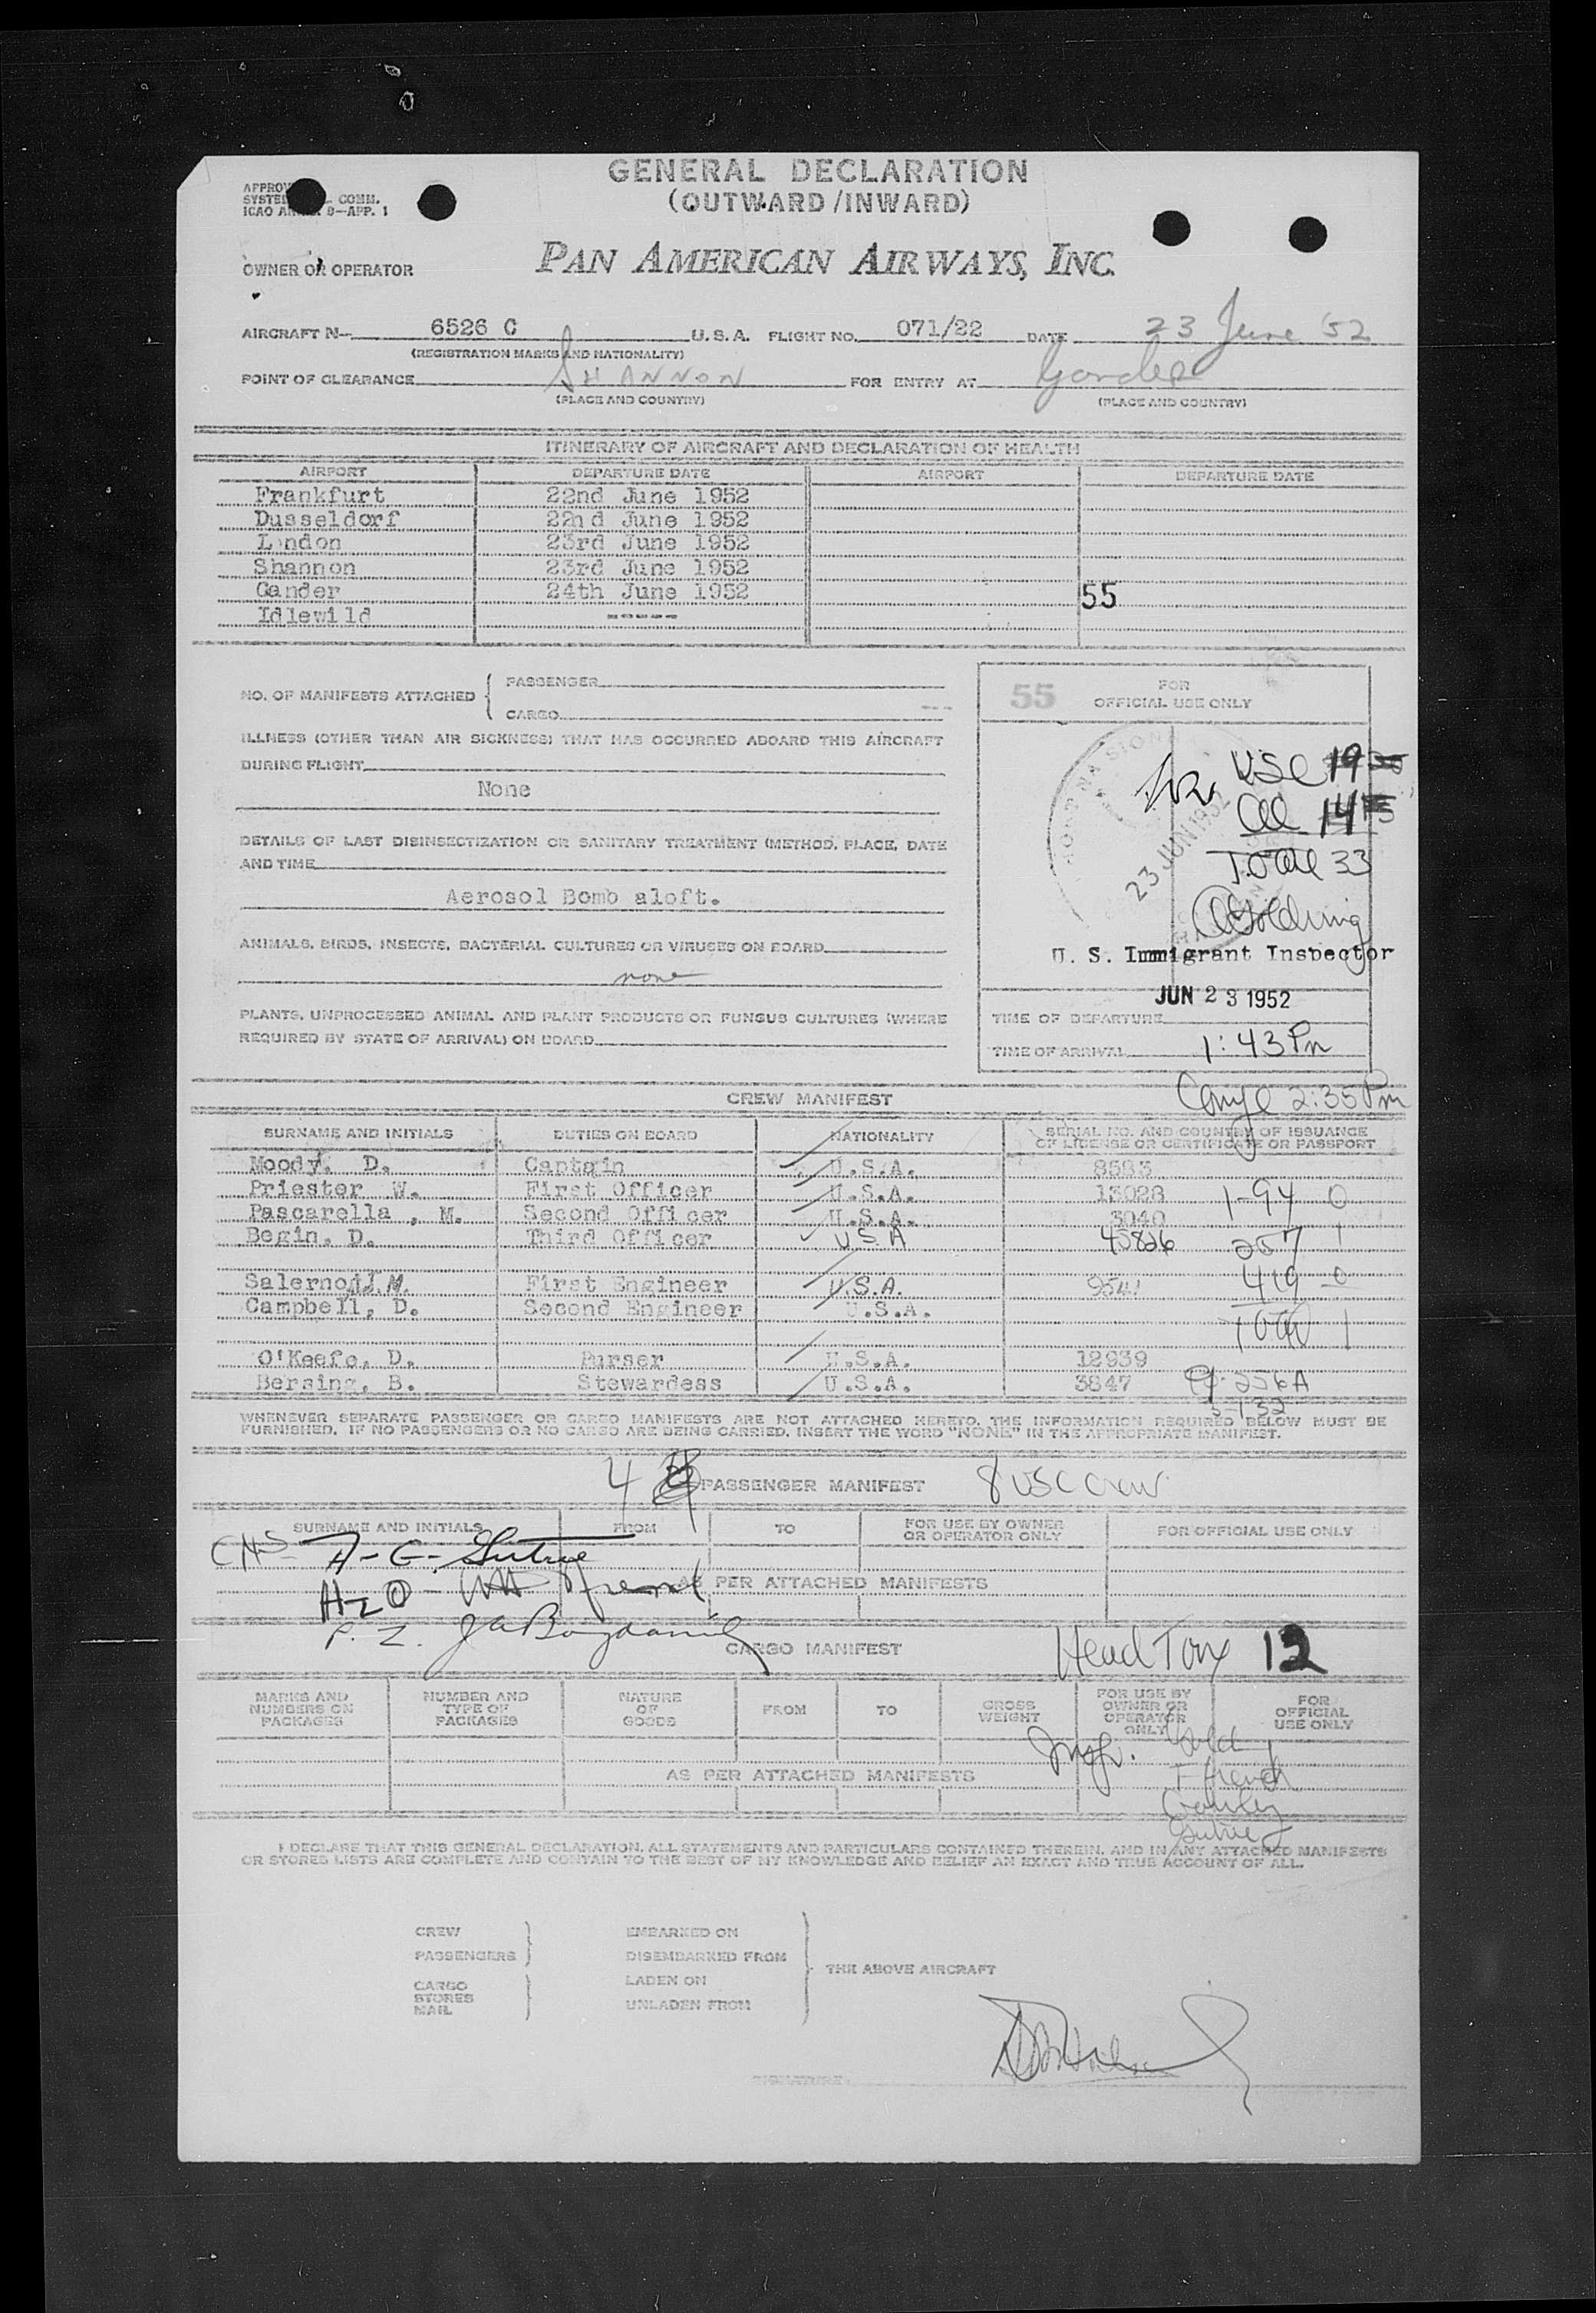 GENERAL DECLARATION
(OUTWARD/INWARD)
ICAO 9—APP. 1
COMM.
OWNER OR OPERATOR PAN AMERICAN AIRWAYS, INC.
AIRCRAFT N— 6526 C U.S.A. FLIGHT NO. 071/22 DATE 23 June '52
(REGISTRATION MARKS AND NATIONALITY)
POINT OF CLEARANCE SHANNON FOR ENTRY AT Gander
(PLACE AND COUNTRY) (PLACE AND COUNTRY)
ITINERARY OF AIRCRAFT AND DECLARATION OF HEALTH
AIRPORT DEPARTURE DATE AIRPORT DEPARTURE DATE
Frankfurt 22nd June 1952
Dusseldorf 22nd June 1952
London 23rd June 1952
Shannon 23rd June 1952
Gander 24th June 1952 55
Idlewild -----
NO. OF MANIFESTS ATTACHED { PASSENGER
CARGO ---
55 FOR
OFFICIAL USE ONLY
ILLNESS (OTHER THAN AIR SICKNESS) THAT HAS OCCURRED ABOARD THIS AIRCRAFT
DURING FLIGHT
None
USC 19
14
Total 33
23 JUN 1952
DETAILS OF LAST DISINSECTIZATION OR SANITARY TREATMENT (METHOD, PLACE, DATE
AND TIME
Aerosol Bomb aloft.
ANIMALS, BIRDS, INSECTS, BACTERIAL CULTURES OR VIRUSES ON BOARD
none
U. S. Immigrant Inspector
JUN 23 1952
PLANTS, UNPROCESSED ANIMAL AND PLANT PRODUCTS OR FUNGUS CULTURES (WHERE
REQUIRED BY STATE OF ARRIVAL) ON BOARD
TIME OF DEPARTURE
TIME OF ARRIVAL 1:43 Pm
2:35 Pm
CREW MANIFEST
SURNAME AND INITIALS DUTIES ON BOARD NATIONALITY SERIAL NO. AND COUNTRY OF ISSUANCE
OF LICENSE OR CERTIFICATE OR PASSPORT
Moody, D. Captain U.S.A. 8583
Priester W. First Officer U.S.A. 13028 1-94 0
Pascarella , M. Second Officer U.S.A. 3040
Begin, D. Third Officer USA 45826 257 1
Salerno, J.M. First Engineer U.S.A. 419 - 0
Campbell, D. Second Engineer U.S.A.
Total 1
O'Keefe, D. Purser U.S.A. 12939
Bersing, B. Stewardess U.S.A. 3847 256A
WHENEVER SEPARATE PASSENGER OR CARGO MANIFESTS ARE NOT ATTACHED HERETO, THE INFORMATION REQUIRED BELOW MUST BE
FURNISHED. IF NO PASSENGERS OR NO CARGO ARE BEING CARRIED, INSERT THE WORD "NONE" IN THE APPROPRIATE MANIFEST.
4 PASSENGER MANIFEST 8 USC crew
SURNAME AND INITIALS FROM TO FOR USE BY OWNER
OR OPERATOR ONLY FOR OFFICIAL USE ONLY
AS PER ATTACHED MANIFESTS
CARGO MANIFEST Head Tax 12
MARKS AND
NUMBERS ON
PACKAGES NUMBER AND
TYPE OF
PACKAGES NATURE
OF
GOODS FROM TO GROSS
WEIGHT FOR USE BY
OWNER OR
OPERATOR
ONLY FOR
OFFICIAL
USE ONLY
AS PER ATTACHED MANIFESTS
I DECLARE THAT THIS GENERAL DECLARATION, ALL STATEMENTS AND PARTICULARS CONTAINED THEREIN, AND IN ANY ATTACHED MANIFESTS
OR STORES LISTS ARE COMPLETE AND CONTAIN TO THE BEST OF MY KNOWLEDGE AND BELIEF AN EXACT AND TRUE ACCOUNT OF ALL.
CREW EMBARKED ON
PASSENGERS DISEMBARKED FROM
THE ABOVE AIRCRAFT
CARGO LADEN ON
STORES
MAIL UNLADEN FROM
SIGNATURE